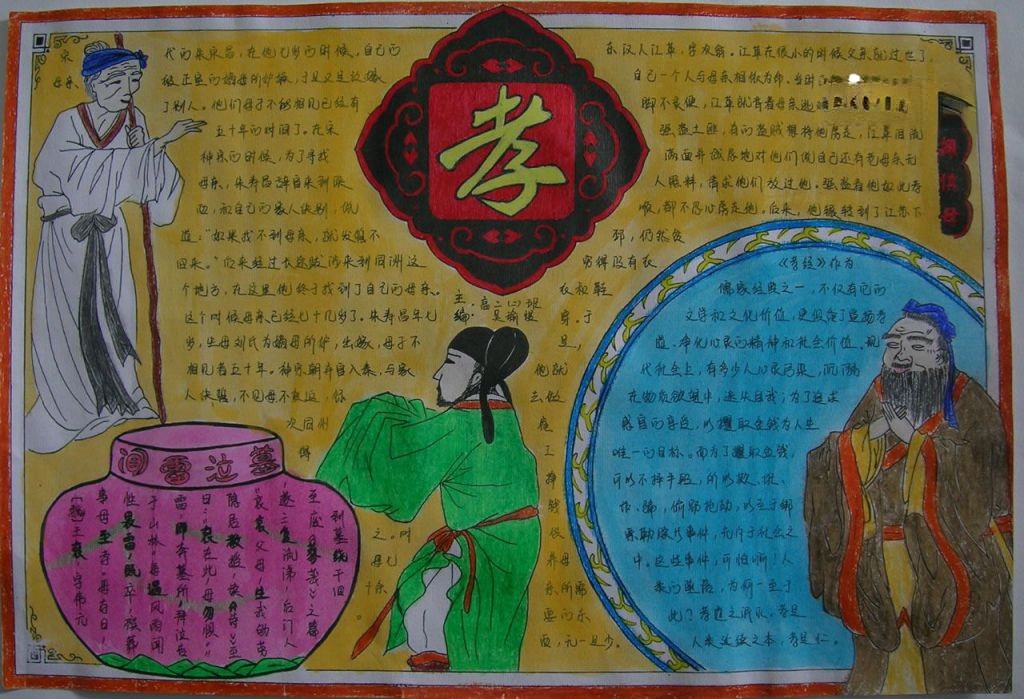 孝
宋
代的朱寿昌，在他七岁的时候，自己的
母亲
被正室的嫡母所妒嫉，于是只是改嫁
了别人。他们母子不能相见已经有
五十年的时间了。在宋
神宗的时候，为了寻找
母亲，朱寿昌辞官来到陕
西，和自己的家人诀别，说
道：“如果找不到母亲，就发誓不
回来。”后来经过长途跋涉来到同州这
个地方，在这里他终于找到了自己的母亲。
这个时候母亲已经七十几岁了。朱寿昌年七
岁，生母刘氏为嫡母所妒，出嫁，母子不
相见者五十年。神宗朝弃官入秦，与家
人诀誓，不见母不复还
次同州
得
之。时
母七
十余
主：高二（4）班
编：吴
东汉人江革，字次翁。江革在很小的时候父亲就过世了，
自己一个人与母亲相依为命。当时
脚不灵便，江革就背着母亲逃
强盗土匪，有的盗贼想将他虏走，江革泪流
满面并诚恳地对他们说自己还有老母亲无
人照料，请求他们放过他。强盗看他如此孝
顺，都不忍心虏走他。后来，他辗转到了江苏下
邳，仍然贫
穷得没有衣
衣和鞋
穿。于
是，
他就
去做
雇
工
挣
钱
供
养母
亲所需
要的东
西，无一且少。
《孝经》作为
儒家经典之一，不仅有它的
文学和文化价值，更饱含了宣扬孝
道、净化心灵的精神和社会价值。现
代社会上，有多少人心灵已染，沉溺
在物质欲望中，迷失自我；为了追求
感官的享受，以攫取金钱为人生
唯一的目标。而为了攫取金钱，
可以不择手段，所以杀、淫、
诈、骗，偷窃抢劫，以至于绑
票勒赎等事件，充斥于社会之
中。这些事件，可怕啊！人
类的堕落，为何一至于
此？孝道之沦丧。孝是
人类道德之本，孝是仁
闻雷泣墓
〔魏〕王裒，字伟元
事母至孝。母存日，
性畏雷，既卒，殡葬
于山林。每遇风雨闻
雷，即奔墓所，拜泣告
曰：“裒在此，母勿惧。”
隐居教授，读《诗》至
“哀哀父母，生我劬劳
遂三复流涕，后门人
至废《蓼莪》之篇
到墓绕千回